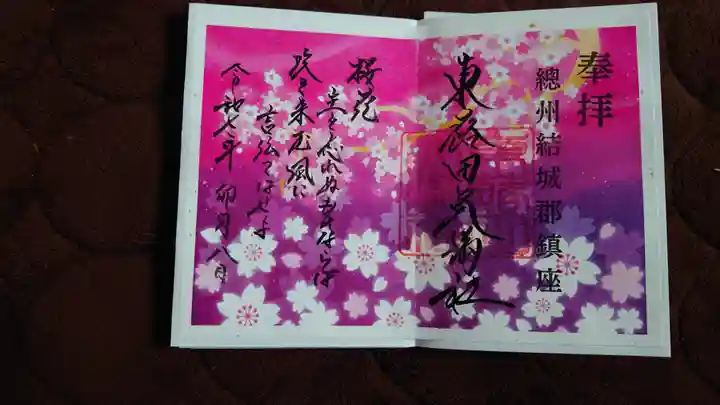 奉拝
總州結城郡鎮座
東蕗田天満社
桜花
主を忘れぬものならば
吹き来む風に
言伝てはせよ
令和七年 卯月八日